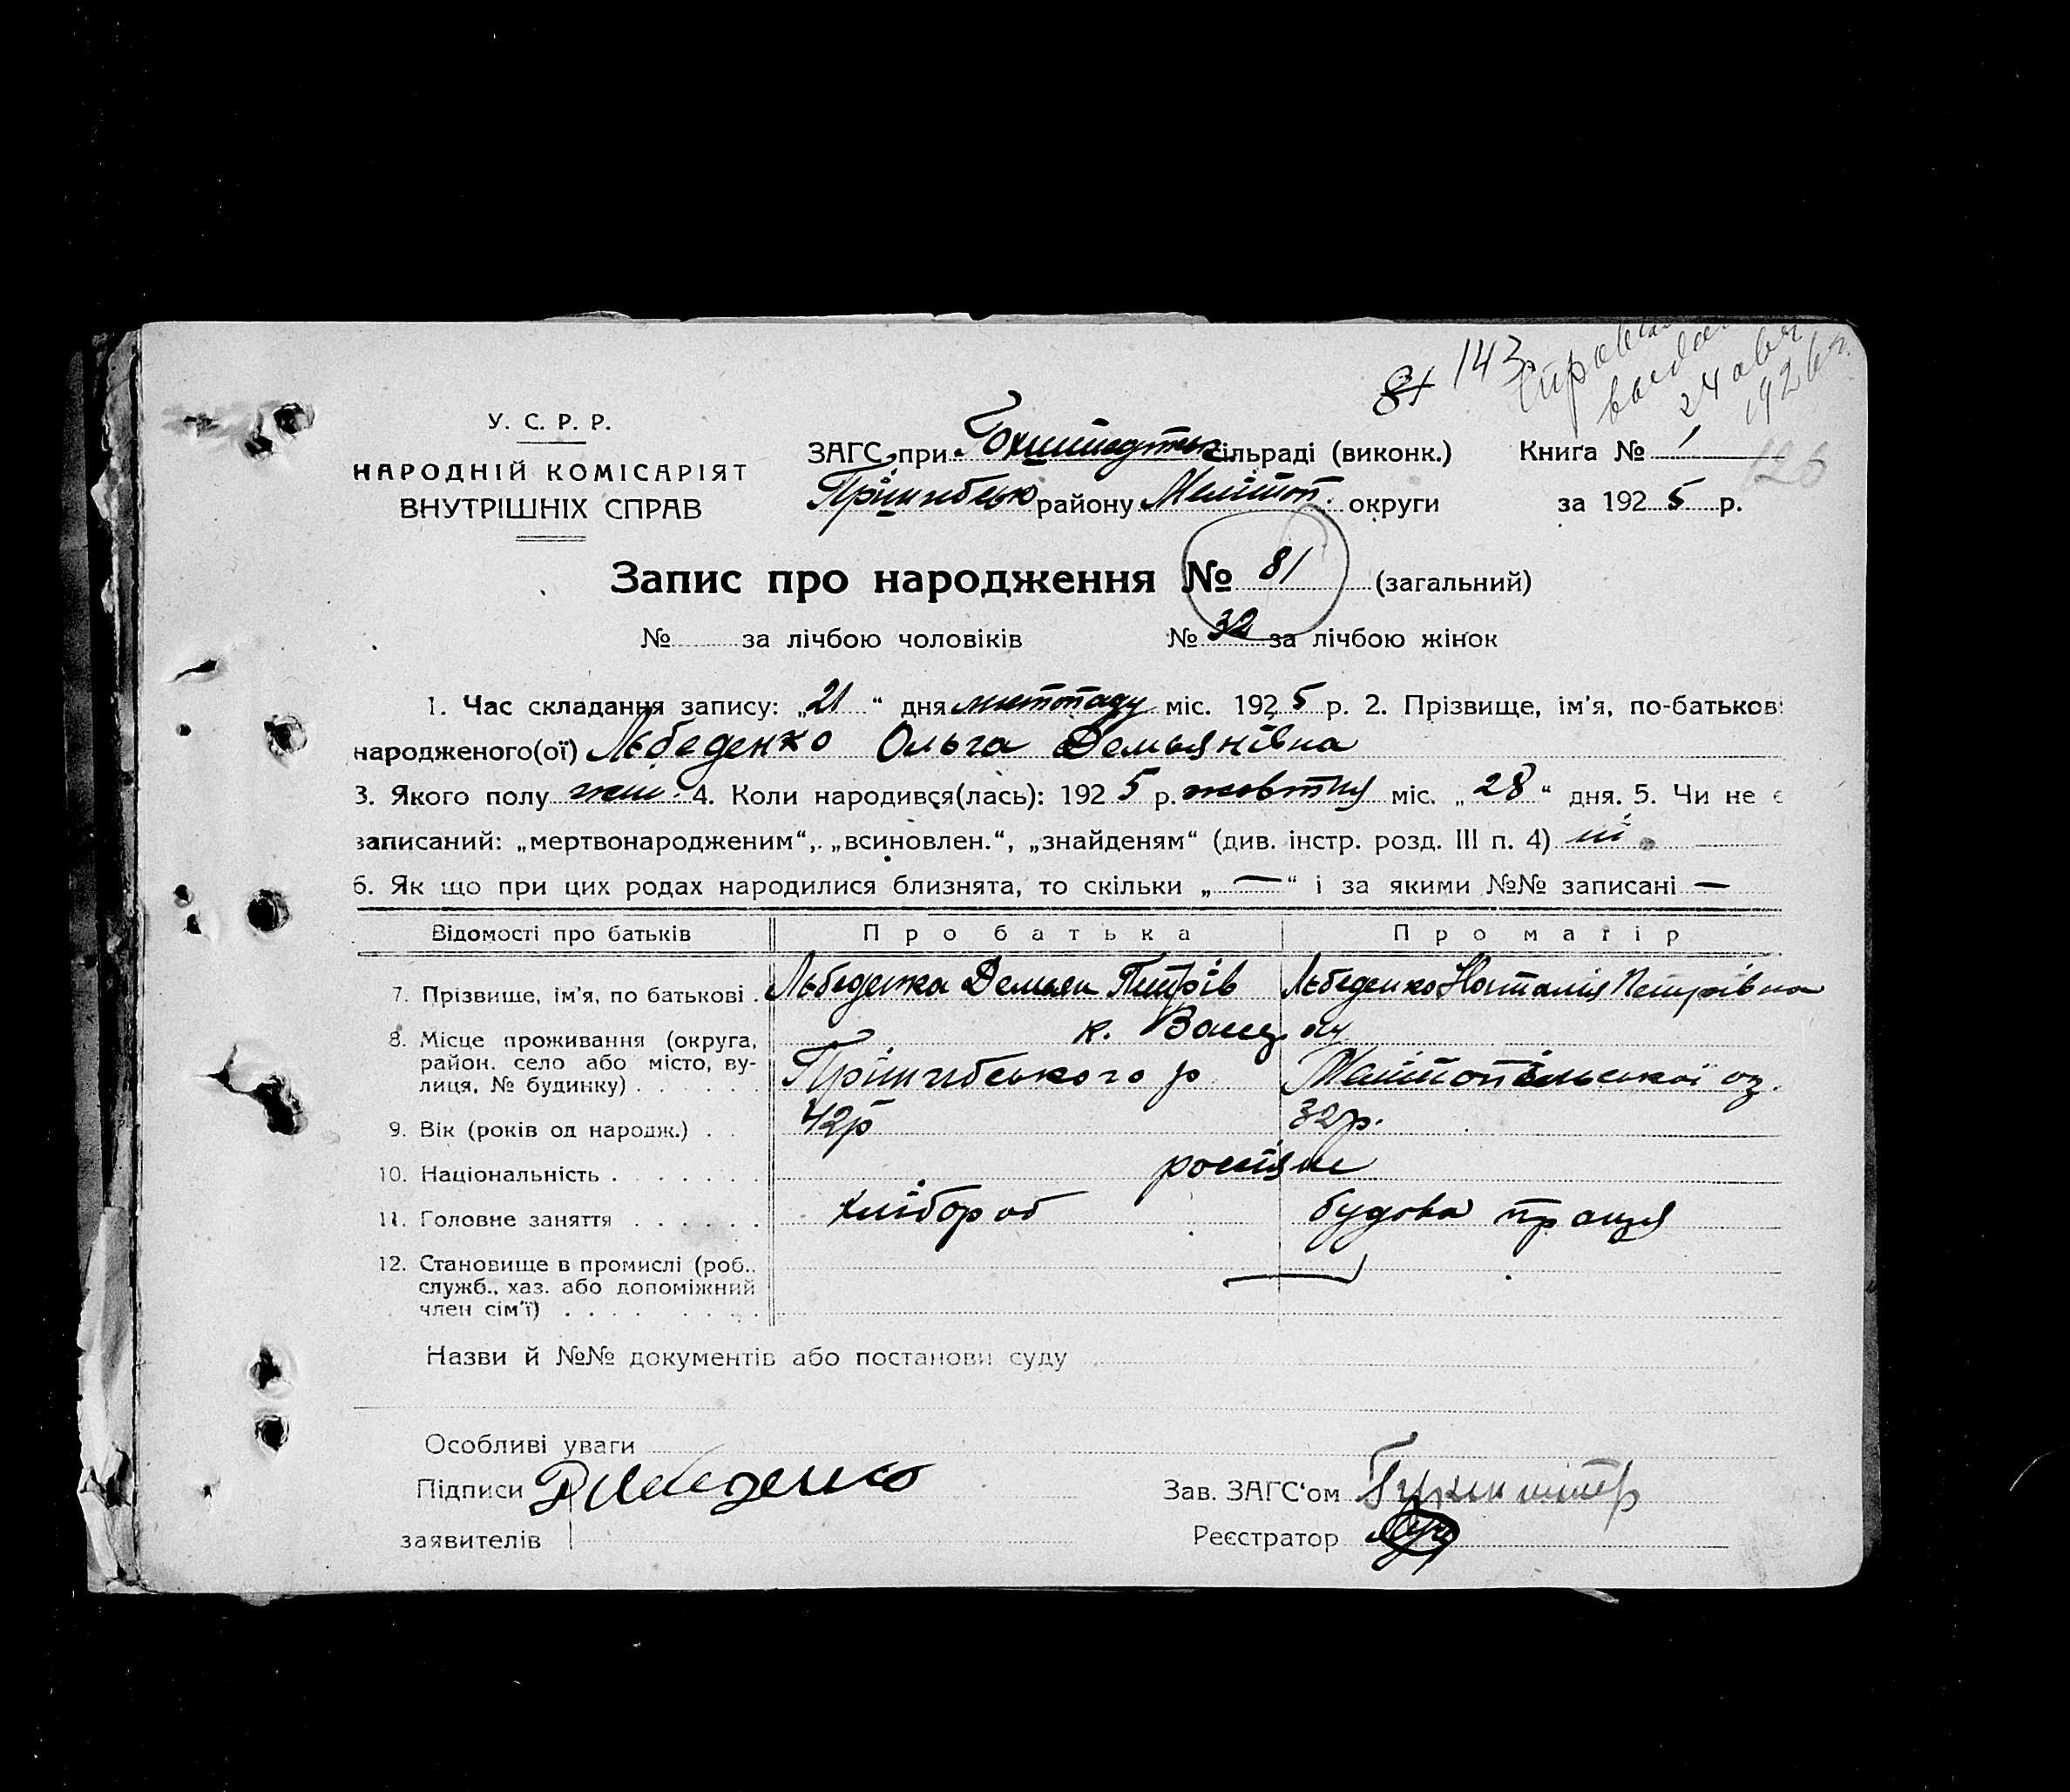 81 143 Справка
выдан
24 авг
1926 г.
У. С. Р. Р.
НАРОДНІЙ КОМІСАРІЯТ
ВНУТРІШНІХ СПРАВ
ЗАГС при Гохштадтськ сільраді (виконк.) Книга № 1
126
Прішибськ району Мелітоп. округи за 1925 р.
Запис про народження № 81 (загальний)
№ за лічбою чоловіків № 32 за лічбою жінок
1. Час складання запису: „21“ дня листопаду міс. 1925 р. 2. Прізвище, ім'я, по-батькові
народженого(ої) Лєбеденко Ольга Демьянівна
3. Якого полу жін. 4. Коли народився(лась): 1925 р. жовтня міс. „28“ дня. 5. Чи не є
записаний: „мертвонародженим“, „всиновлен.“, „знайденям“ (див. інстр. розд. III п. 4) ні
6. Як що при цих родах народилися близнята, то скільки „—“ і за якими №№ записані —
Відомості про батьків Про батька Про матір
7. Прізвище, ім'я, по батькові . Лєбеденка Демьян Петрів Лєбеденко Наталія Петрівна
8. Місце проживання (округа,
район. село або місто, ву-
лиця, № будинку) . . . к.
Прішибського р Мелітопільської ок.
9. Вік (років од народж.) . . 42р 32р.
10. Національність . . . . . . . росіяне
11. Головне заняття . . . . . . хлібороб будова праця
12. Становище в промислі (роб.,
служб., хаз. або допоміжний
член сім'ї) . . . . . . . .
Назви й №№ документів або постанови суду
Особливі уваги
Підписи Д Лебеденко Зав. ЗАГС'ом
заявителів Реєстратор